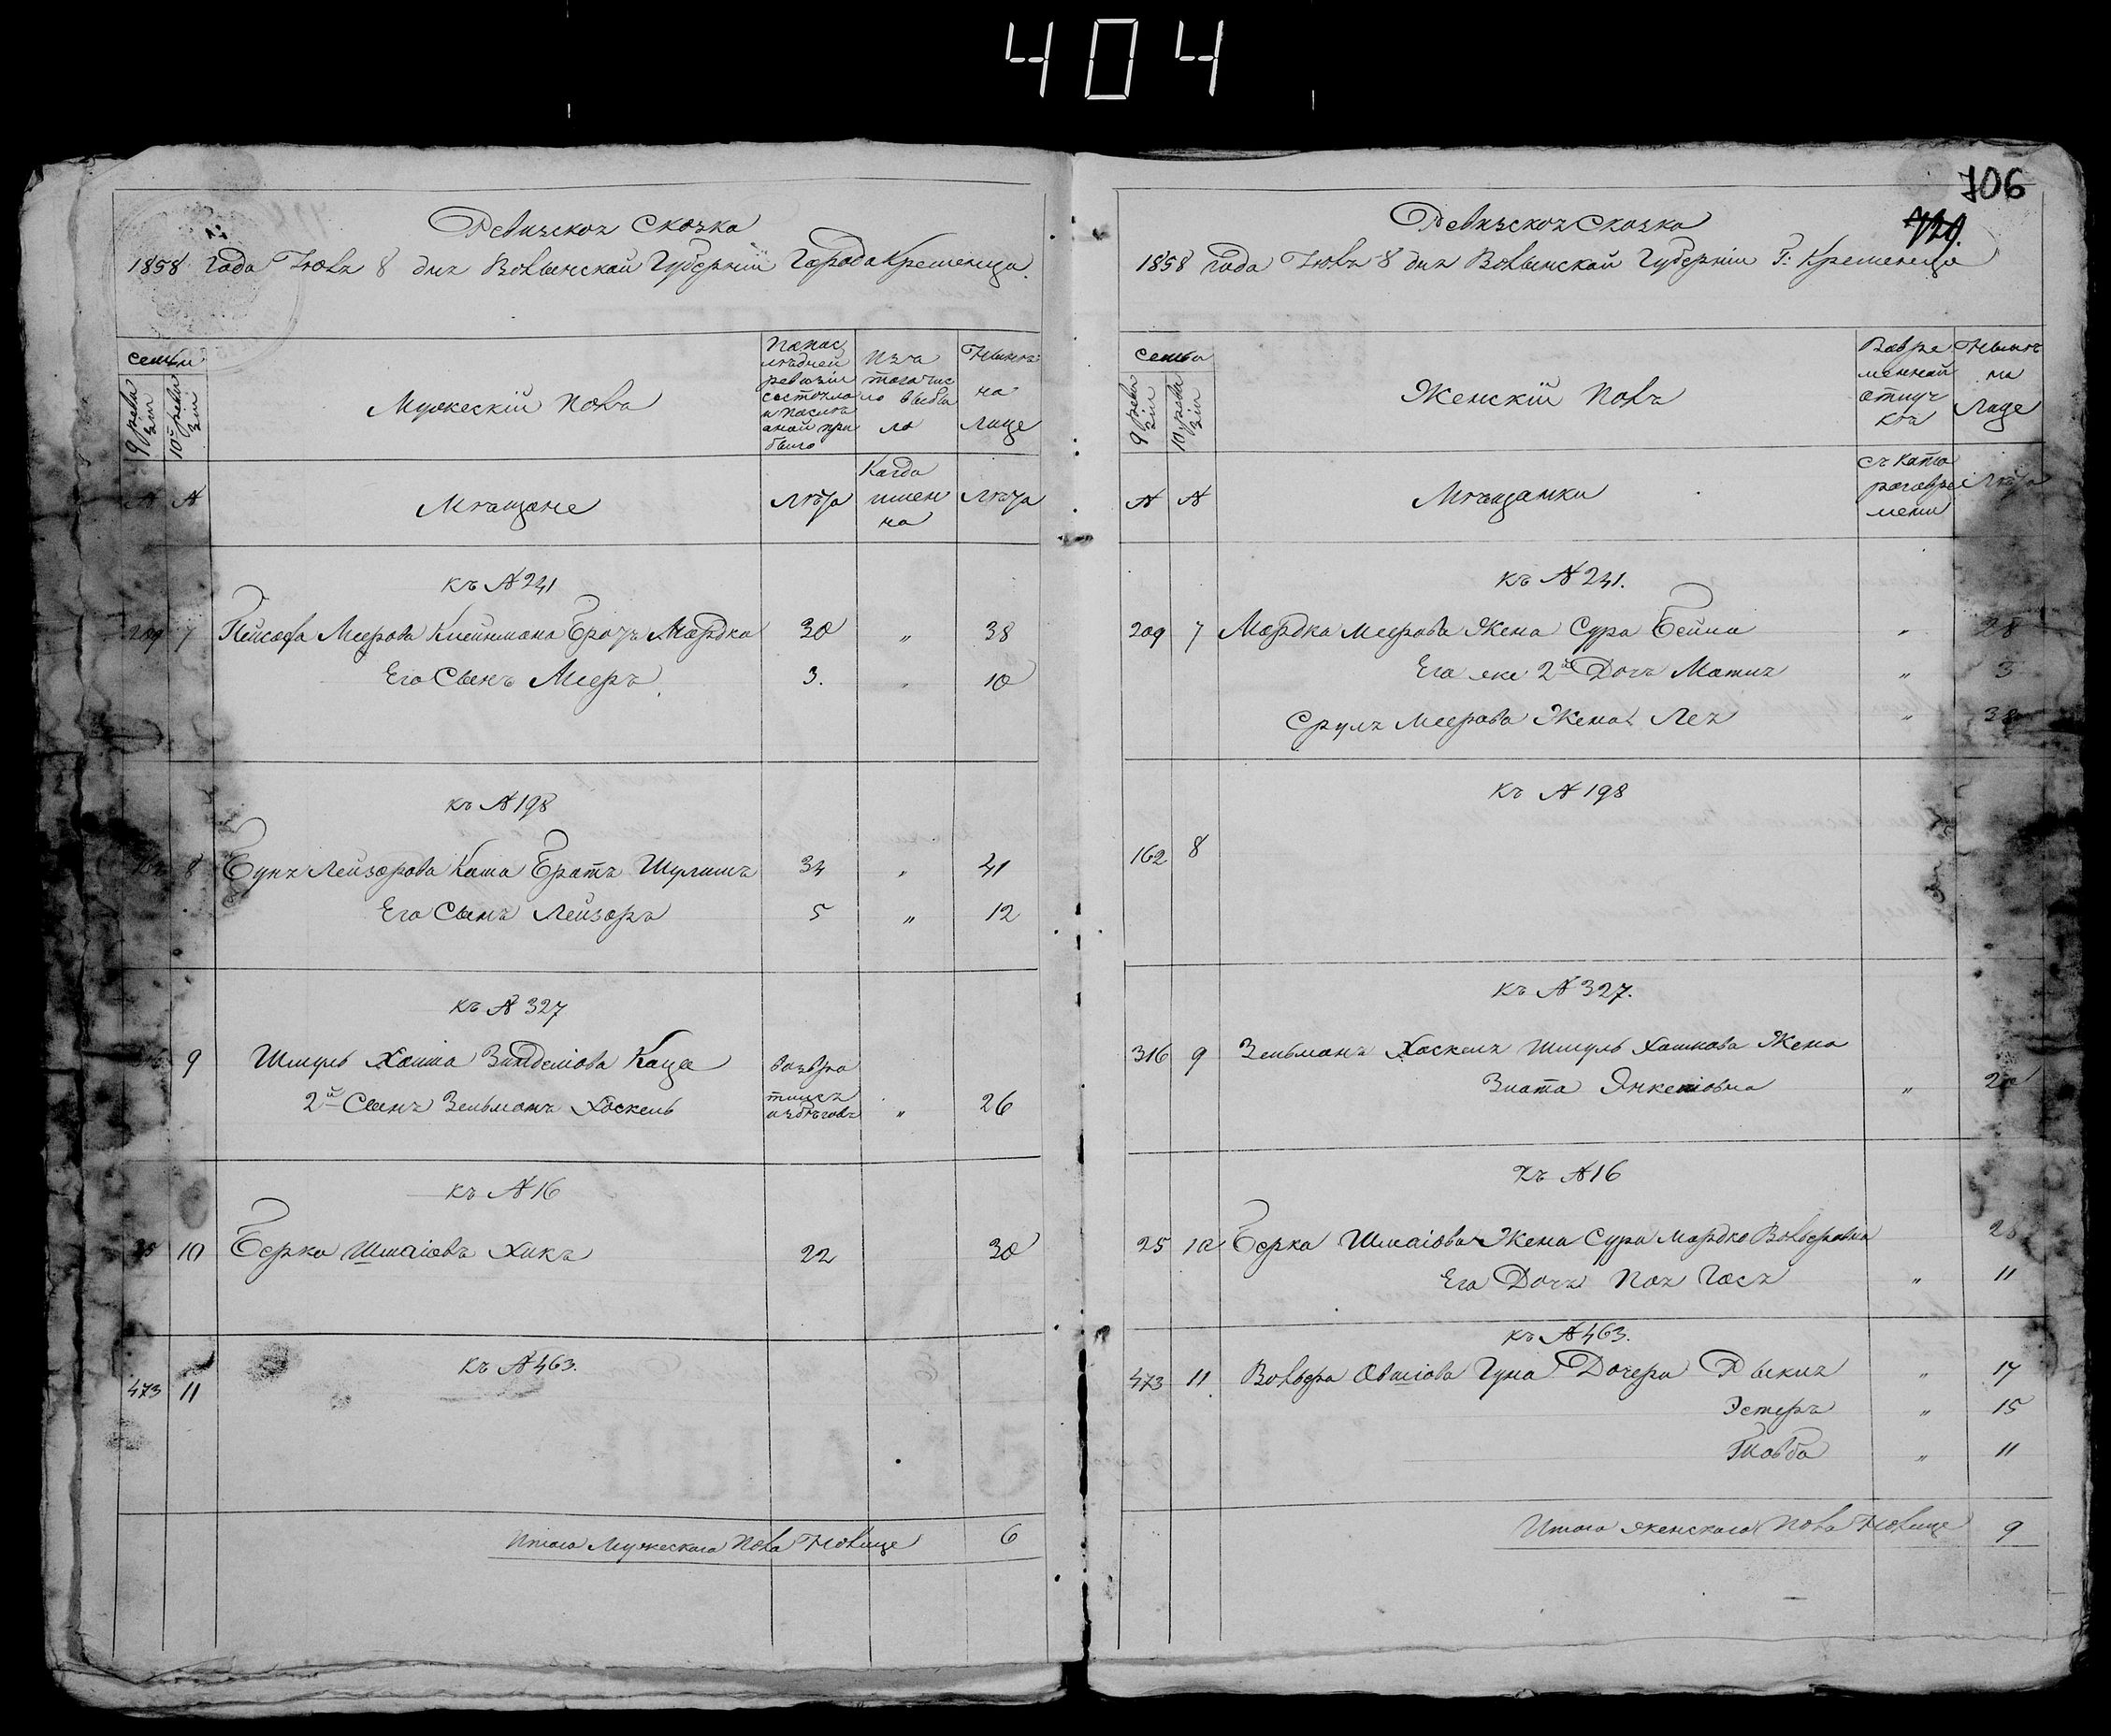 404
Ревизская Сказка
1858 Года Июля 8 дня Волынской Губернии Города Кременца.
семьи
9 реви зіи
10й реви зіи
Мужескій полъ
По пос лѣдней ревизіи состояло и после оной при было
Изъ того чис ла выбы ло
Нынѣ на лице
№ №
Мѣщане
Лѣта
Когда имен но
Лѣта
къ № 241
209 7 Пейсаха Меерова Клейнмана Братъ Мордко 30 " 38
Его Сынъ Мееръ 3. " 10
къ № 198
162 8 Лейзорова Каца Братъ Шулимъ 34 " 41
Его Сынъ Лейзоръ 5 " 12
къ № 327
9 Шмуль Хаима Каца
2й Сынъ Зельманъ Хаскель " 26
къ № 16
25 10 Берко Шмаіовъ Хикъ 22 30
къ № 463.
473 11
Итого Мужескаго Пола На лице 6
706
729.
Ревизская Сказка
1858 года Июля 8 дня Волынской Губерніи Г: Кременца
семьи
9 реви зіи
10 реви зіи
Женскій Полъ
Во вре менной отлуч кѣ
Нынѣ на Лице
№ №
Мѣщанки
съ кото раго вре мени
Лѣта
къ № 241.
209 7 Мордка Меерова Жена Сура Бейла " 28
Его же 2я Дочь Матля " 3
Сруля Меерова Жена Лея " 38
къ № 198
162 8
къ № 327.
316 9 Зельмана Хаскеля Шмуль Хаимова Жена
Злата Янкеліовна "
къ № 16
25 10 Берка Шмаіова Жена Сура Мордко Вольфовна
Его Дочь "  11
къ № 463.
473 11 Вольфа Дочери Рыкля " 17
Эстеръ " 15
" 11
Итого женскаго Пола На лице 9